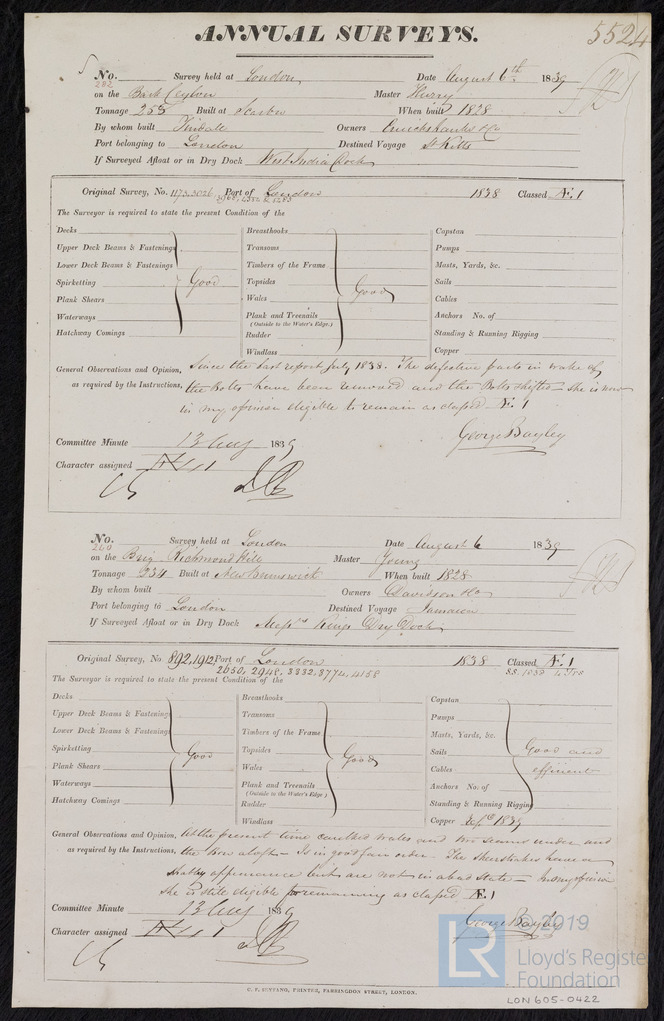 5524
ANNUAL SURVEYS.
No. 282 Survey held at London Date August 6th 1839
on the Bark Ceylon Master
Tonnage 253 Built at Scarbro When built 1828
By whom built Tindall Owners Cruickshanks & Co
Port belonging to London Destined Voyage St Kitts
If Surveyed Afloat or in Dry Dock West India Dock
Original Survey, No. Port of London 1838 Classed Æ.1
The Surveyor is required to state the present Condition of the
Decks Breasthooks Capstan
Upper Deck Beams & Fastenings Transoms Pumps
Lower Deck Beams & Fastenings Timbers of the Frame Masts, Yards, &c.
Spirketting Good Topsides Good Sails
Plank Shears Wales Cables
Waterways Plank and Treenails Anchors No. of
(Outside to the Water's Edge.)
Hatchway Comings Rudder Standing & Running Rigging
Windlass Copper
General Observations and Opinion, Since the last report July 1838. The defective parts in wake of
as required by the Instructions, the Bolts have been removed and the Bolts shifted – She is now
in my opinion eligible to remain as classed Æ 1
George Bayley
Committee Minute 13 Aug 1839
Character assigned Æ 1
No. 260 Survey held at London Date August 6 1839
on the Brig Richmond Hill Master Young
Tonnage 234 Built at New Brunswick When built 1828
By whom built Owners Davidson & Co
Port belonging to London Destined Voyage Jamaica
If Surveyed Afloat or in Dry Dock Messrs Kings Dry Dock
Original Survey, No. 892, 1912 Port of London 1838 Classed Æ.1
2650, 2948, 3332, 3774, 4158
The Surveyor is required to state the present Condition of the
Decks Breasthooks Capstan
Upper Deck Beams & Fastenings Transoms Pumps
Lower Deck Beams & Fastenings Timbers of the Frame Masts, Yards, &c.
Spirketting Good Topsides Good Sails Good and
Plank Shears Wales Cables efficient
Waterways Plank and Treenails Anchors No. of
(Outside to the Water's Edge.)
Hatchway Comings Rudder Standing & Running Rigging
Windlass Copper 1839
General Observations and Opinion, At the present time caulked Wales and two seams under and
as required by the Instructions, the Bow aloft – Is in good fair order. The Sheerstrakes have a
shabby appearance but are not in a bad State – In my opinion
She is still eligible for remaining as classed Æ 1
George Bayley
Committee Minute 13 Aug 1839
Character assigned Æ 1
C. F. SEYFANG, PRINTER, FARRINGDON STREET, LONDON.
LR
© 2019
Lloyd's Register
Foundation
LON605-0422